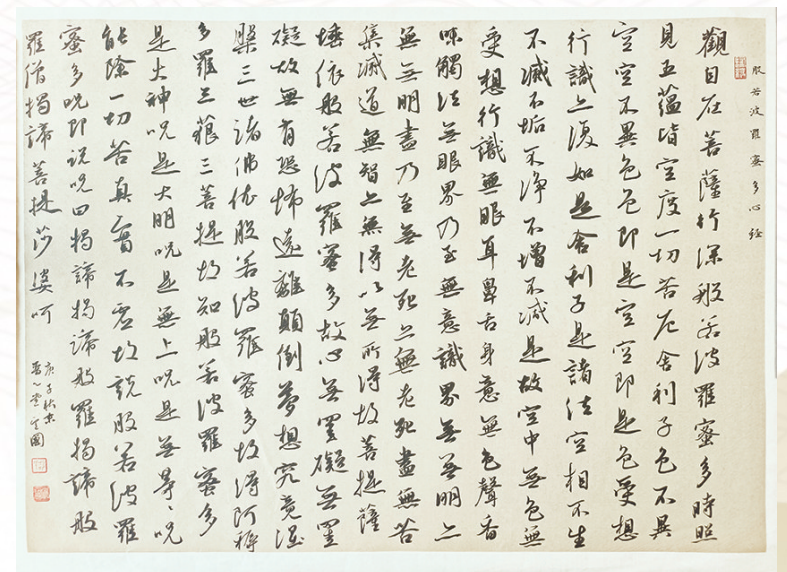 般若波羅蜜多心經
觀自在菩薩行深般若波羅蜜多時照
見五蘊皆空度一切苦厄舍利子色不異
空空不異色色即是空空即是色受想
行識亦復如是舍利子是諸法空相不生
不滅不垢不淨不增不減是故空中無色無
受想行識無眼耳鼻舌身意無色聲香
味觸法無眼界乃至無意識界無無明亦
無無明盡乃至無老死亦無老死盡無苦
集滅道無智亦無得以無所得故菩提薩
埵依般若波羅蜜多故心無罣礙無罣
礙故無有恐怖遠離顛倒夢想究竟涅
槃三世諸佛依般若波羅蜜多故得阿耨
多羅三藐三菩提故知般若波羅蜜多
是大神咒是大明咒是無上咒是無等等咒
能除一切苦真實不虛故說般若波羅
蜜多咒即說咒曰揭諦揭諦般羅揭諦般
羅僧揭諦菩提莎婆呵
庚子秋末